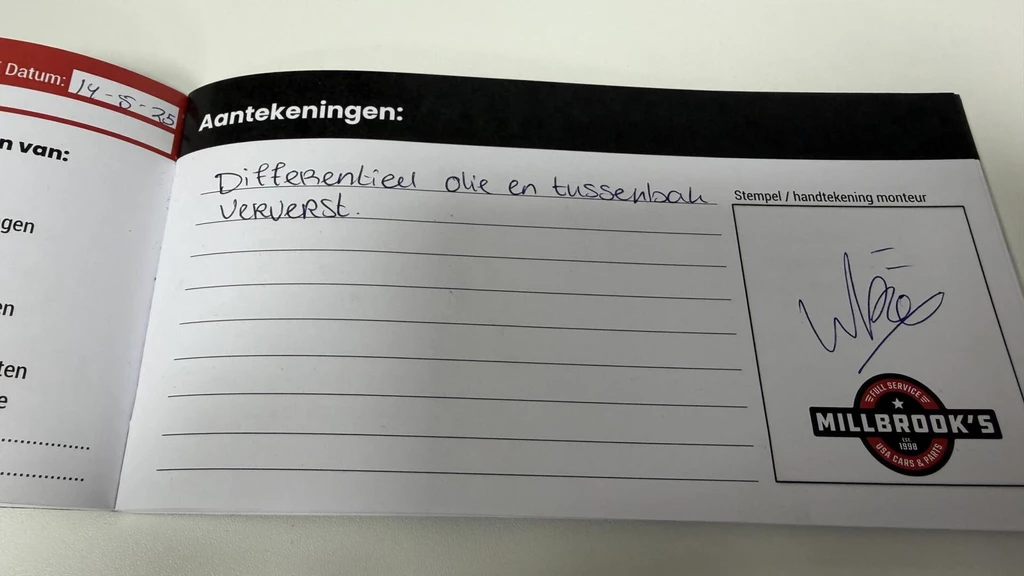 Datum: 14-5-25
n van:
gen
en
ten
e
Aantekeningen:
Differentieel olie en tussenbak
ververst.
Stempel / handtekening monteur
FULL SERVICE
MILLBROOK'S
EST. 1998
USA CARS & PARTS